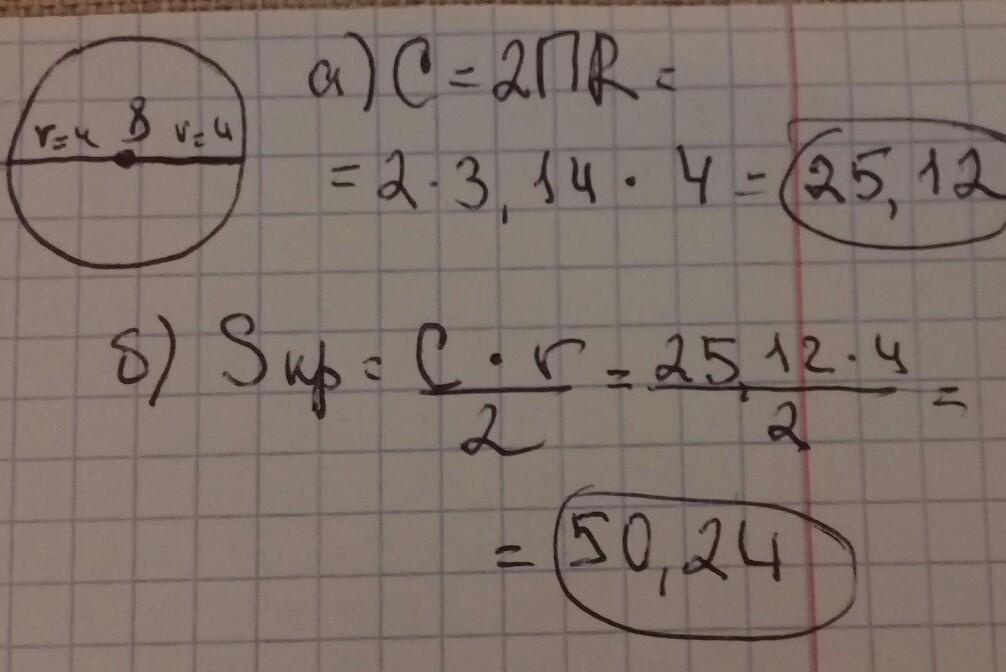 r=4 8 r=4
а) C = 2ПR =
= 2 · 3,14 · 4 = 25,12
б) Sкр = C · r / 2 = 25,12 · 4 / 2 =
= 50,24